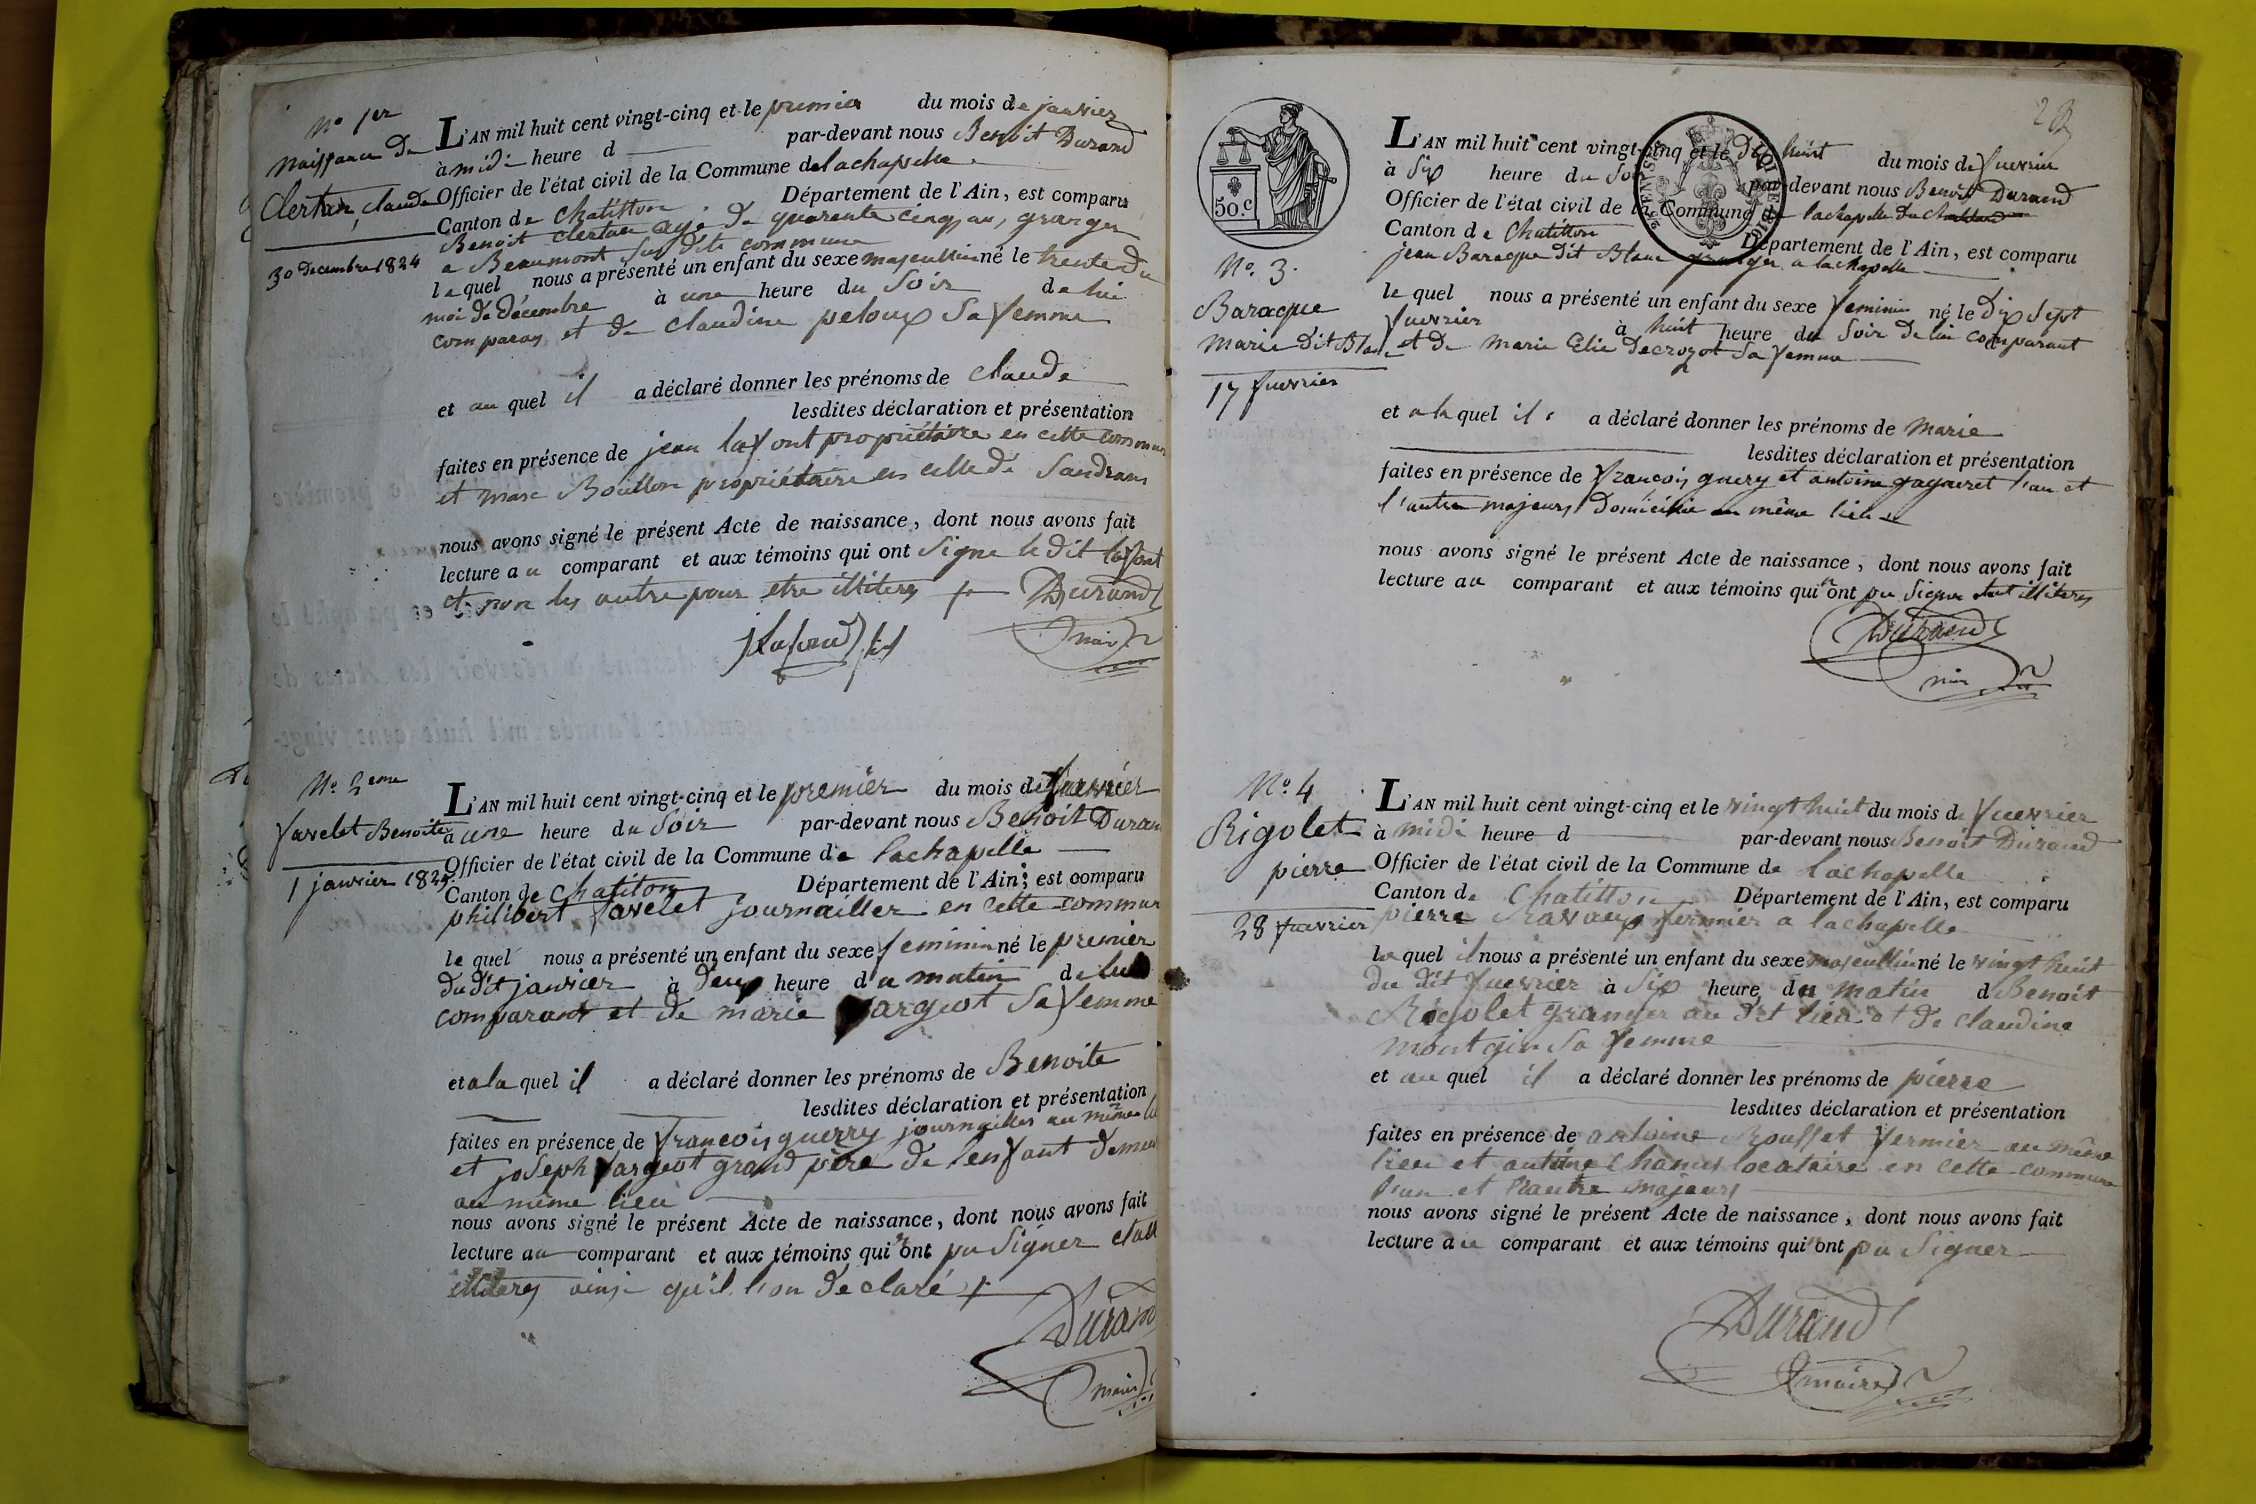 No 1er
Naissance de
Clertan, Claude
30 Decembre 1824
L'AN mil huit cent vingt-cinq et le premier du mois de janvier
à midi heure d par-devant nous Benoit Durand
Officier de l'état civil de la Commune de lachapelle
Canton de Chatillon Département de l'Ain, est comparu
Benoit Clertan agé de quarente cinq an, granger
a Beaumont susdite commune
le quel nous a présenté un enfant du sexe masculin né le trente du
moi de décembre à une heure du Soir de lui
comparan et de claudine peloux Sa femme
et au quel il a déclaré donner les prénoms de Claude
lesdites déclaration et présentation
faites en présence de jean lafont propriétaire en cette commune
et marc Bouillon propriétaire en celle de Sandrans
nous avons signé le présent Acte de naissance, dont nous avons fait
lecture au comparant et aux témoins qui ont Signe le dit lafont
et non les autre pour etre illiteres Durand
maire
No 2eme
favelet Benoite
1 janvier 1825
L'AN mil huit cent vingt-cinq et le premier du mois de
à une heure du Soir par-devant nous Benoit Duran
Officier de l'état civil de la Commune de lachapelle
Canton de Chatillon Département de l'Ain; est comparu
philibert favelet journailler en cette commun
le quel nous a présenté un enfant du sexe feminin né le premier
du dit janvier à deux heure du matin de lui
comparant et de marie fargeot Sa femme
et a la quel il a déclaré donner les prénoms de Benoite
lesdites déclaration et présentation
faites en présence de francois guerry journailler au même
et joseph fargeot grand père de lenfant
au même lieu
nous avons signé le présent Acte de naissance, dont nous avons fait
lecture au comparant et aux témoins qui n'ont pu Signer
illiteres ainsi qu'il l'on déclaré Durand
maire
23
50.C
No. 3.
Baracque
Marie dit Blanc
17 fuevrier
L'AN mil huit cent vingt-cinq et le dix huit du mois de fuevrier
à Six heure du Soir par-devant nous Benoit Durand
Officier de l'état civil de la Commune de lachapelle du
Canton de Chatillon Département de l'Ain, est comparu
jean Baracque dit Blanc granger a lachapelle
le quel nous a présenté un enfant du sexe feminin né le dix Sept
fuevrier à huit heure du Soir de lui comparant
et de marie Elie Decrozot Sa femme
et a la quel il a déclaré donner les prénoms de Marie
lesdites déclaration et présentation
faites en présence de francois guery et antoine l'un et
l'autre majeurs Domicilié au même lieu
nous avons signé le présent Acte de naissance, dont nous avons fait
lecture au comparant et aux témoins qui n'ont pu Signer illiteres
Durand
maire
No. 4
Rigolet
pierre
28 fuevrier
L'AN mil huit cent vingt-cinq et le vingt huit du mois de fuevrier
à midi heure d par-devant nous Benoit Durand
Officier de l'état civil de la Commune de Lachapelle
Canton de Chatillon Département de l'Ain, est comparu
pierre fermier a lachapelle
le quel il nous a présenté un enfant du sexe masculin né le vingt huit
du dit fuevrier à Six heure du matin d Benoit
Rigolet granger au dit lieu et de claudine
montgin Sa femme
et au quel il a déclaré donner les prénoms de pierre
lesdites déclaration et présentation
faites en présence de antoine Rousset fermier au même
lieu et antoine Chanut locataire en cette commune
l'un et l'autre majeurs
nous avons signé le présent Acte de naissance, dont nous avons fait
lecture au comparant et aux témoins qui n'ont pu Signer
Durand
maire